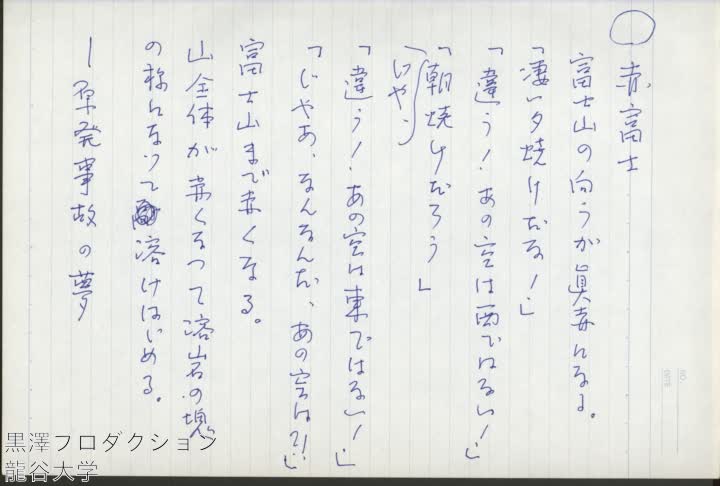 ○
赤富士
富士山の向うが眞赤になる。
「凄い夕焼けだな!」
「違う!あの空は西ではない!」
「朝焼けだろう」
じゃ、
「違う!あの空は東ではない!」
「じゃあ、なんなんだ、あの空は?!」
富士山まで赤くなる。
山全体が赤くなって溶岩の塊
の様になって溶けはじめる。
ー原発事故の夢
黒澤プロダクション
龍谷大学
NO.
DATE